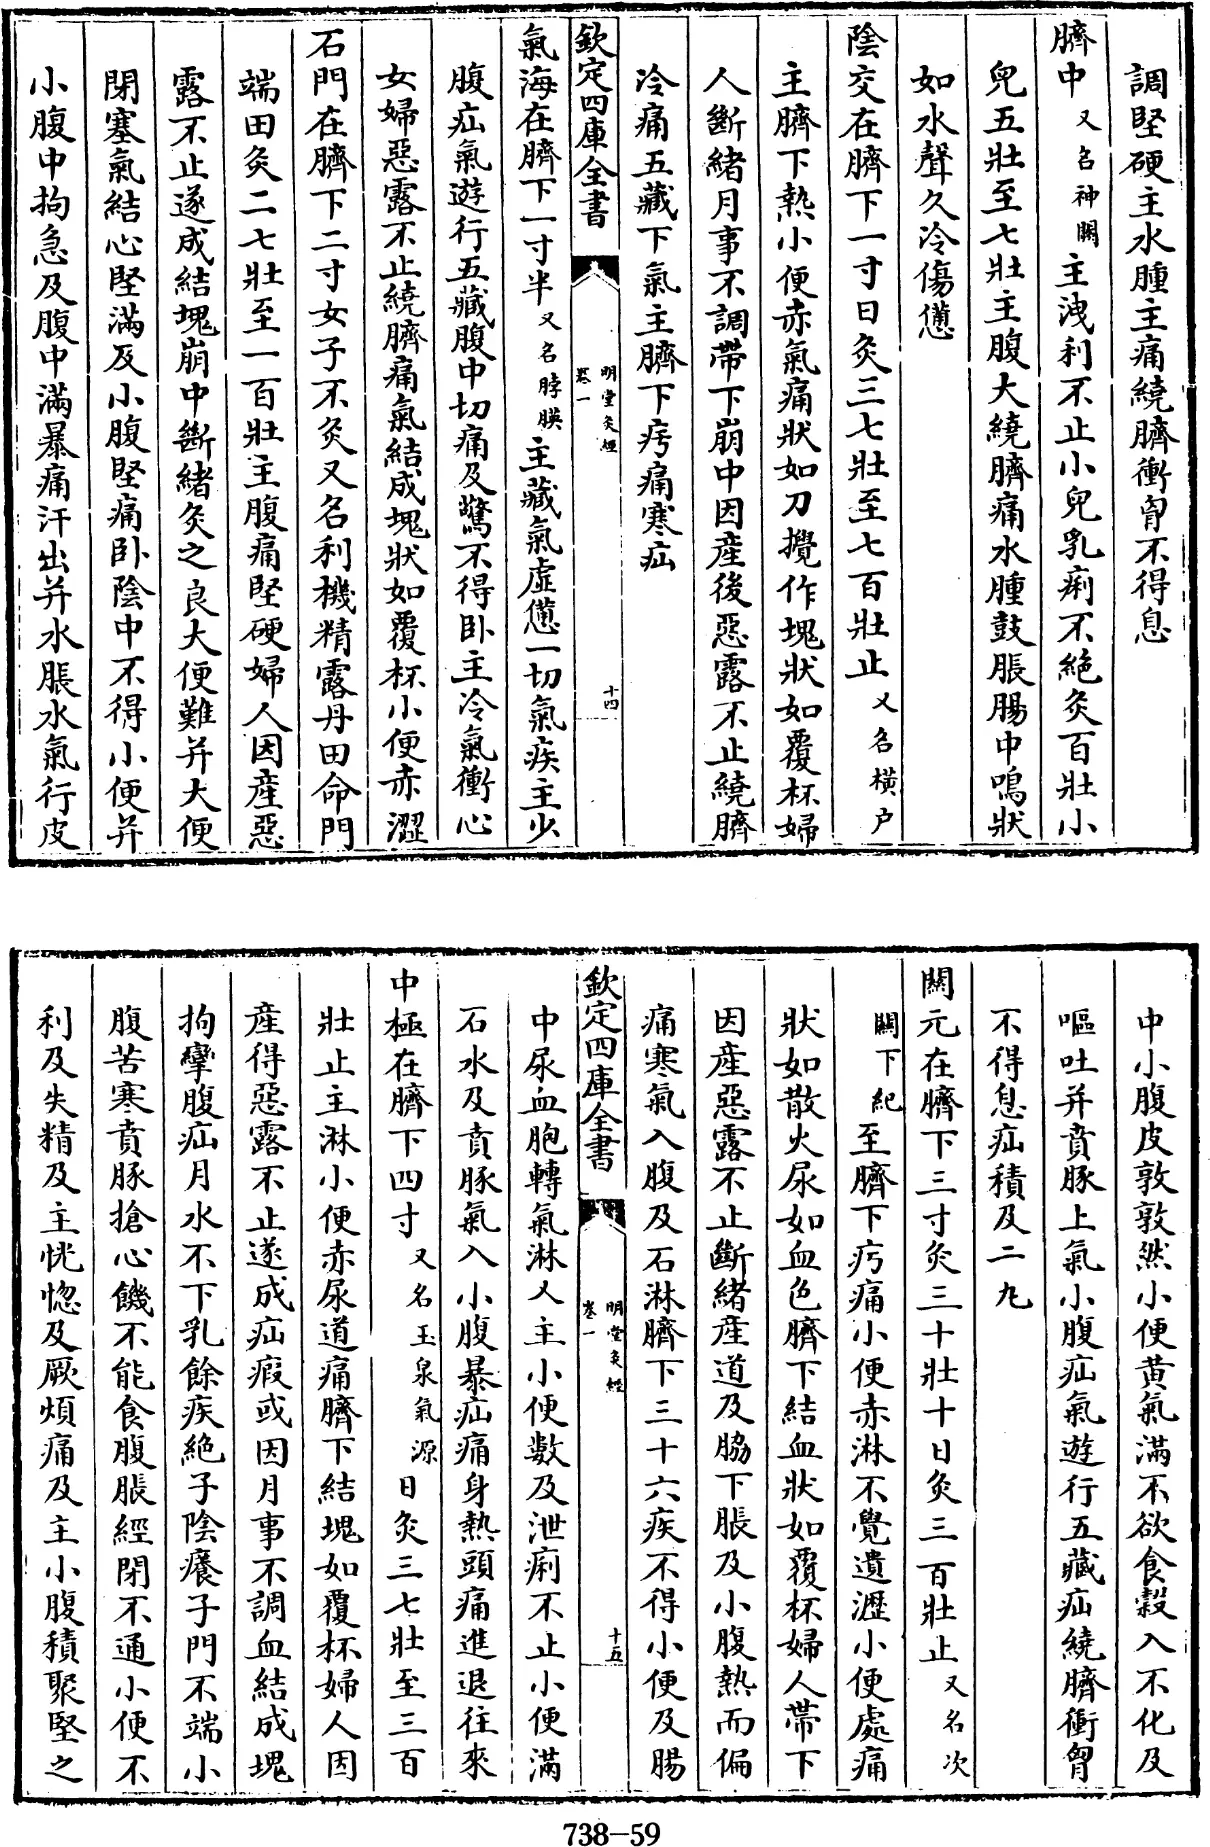 調堅硬主水腫主痛繞臍衝胷不得息
臍中又名神闕主洩利不止小兒乳痢不絶灸百壯小
兒五壯至七壯主腹大繞臍痛水腫鼓脹腸中鳴狀
如水聲久冷傷憊
陰交在臍下一寸日灸三七壯至七百壯止又名横户
主臍下熱小便赤氣痛狀如刀攪作塊狀如覆杯婦
人斷緒月事不調帶下崩中因産後惡露不止繞臍
冷痛五藏下氣主臍下㽲痛寒疝
欽定四庫全書
明堂灸經
卷一
十四
氣海在臍下一寸半又名脖胦主藏氣虚憊一切氣疾主少
腹疝氣遊行五藏腹中切痛及驚不得卧主冷氣衝心
女婦惡露不止繞臍痛氣結成塊狀如覆杯小便赤澀
石門在臍下二寸女子不灸又名利機精露丹田命門
端田灸二七壯至一百壯主腹痛堅硬婦人因産惡
露不止遂成結塊崩中斷緒灸之良大便難并大便
閉塞氣結心堅滿及小腹堅痛卧陰中不得小便并
小腹中拘急及腹中滿暴痛汗出并水脹水氣行皮
中小腹皮敦敦然小便黄氣滿不欲食穀入不化及
嘔吐并賁豚上氣小腹疝氣遊行五藏疝繞臍衝胷
不得息疝積及二九
關元在臍下三寸灸三十壯十日灸三百壯止又名次
關下紀至臍下㽲痛小便赤淋不覺遺瀝小便處痛
狀如散火尿如血色臍下結血狀如覆杯婦人帶下
因産惡露不止斷緒産道及脇下脹及小腹熱而偏
痛寒氣入腹及石淋臍下三十六疾不得小便及腸
欽定四庫全書
明堂灸經
卷一
十五
中尿血胞轉氣淋又主小便數及泄痢不止小便滿
石水及賁豚氣入小腹暴疝痛身熱頭痛進退往來
中極在臍下四寸又名玉泉氣源日灸三七壯至三百
壯止主淋小便赤尿道痛臍下結塊如覆杯婦人因
産得惡露不止遂成疝瘕或因月事不調血結成塊
拘攣腹疝月水不下乳餘疾絶子陰癢子門不端小
腹苦寒賁豚搶心饑不能食腹脹經閉不通小便不
利及失精及主恍惚及厥煩痛及主小腹積聚堅之
738-59